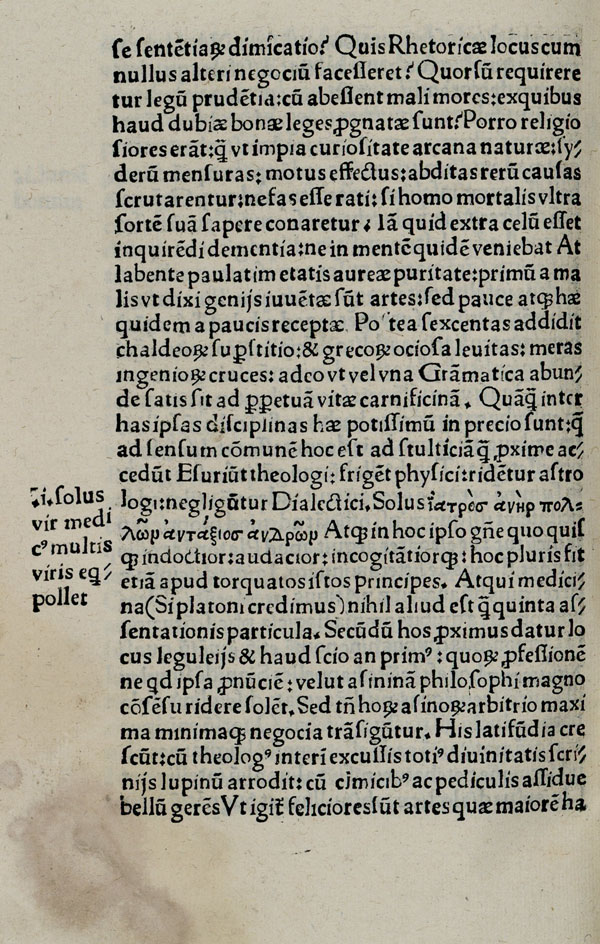 se sentētiaꝝ dimicatio? Quis Rhetoricæ locus cum
nullus alteri negociū facesseret? Quorsū requirere
tur legū prudētia: cū abessent mali mores: exquibus
haud dubiæ bonæ leges ꝓgnatæ sunt? Porro religio
siores erāt: q̄ vt impia curiositate arcana naturæ: sy⸗
derū mensuras: motus effectus: abditas rerū causas
scrutarentur: nefas esse rati: si homo mortalis vltra
sortē suā sapere conaretur. Iā quid extra celū esset
inquirēdi dementia: ne in mentē quidē veniebat At
labente paulatim etatis aureæ puritate: primū a ma
lis vt dixi genijs iuuētæ sūt artes: sed pauce atqꝫ hæ
quidem a paucis receptæ. Postea sexcentas addidit
chaldeoꝝ suꝑstitio: & grecoꝝ ociosa leuitas: meras
ingenioꝝ cruces: adeo vt vel vna Grāmatica abun⸗
de satis sit ad ꝑpetuā vitæ carnificinā. Quāq̄ inter
has ipsas disciplinas hæ potissimū in precio sunt: q̄
ad sensum cōmunē hoc est ad stulticiā q̄ ꝓxime ac⸗
cedūt Esuriūt theologi: frigēt physici: ridētur astro
logi: negligūtur Dialectici. Solus ἰατρὸσ ἀνὴρ πολ⸗
λῶμ ἀντάξιοσ ἀνδρῶμ Atqꝫ in hoc ipso gn̄e quo quisqꝫ
indoctior: audacior: incogitātiorqꝫ: hoc pluris fit
etiā apud torquatos istos principes. Atqui medici⸗
na (Si platoni credimus) nihil aliud est q̄ quinta as⸗
sentationis particula. Secūdū hos ꝓximus datur lo
cus leguleijs & haud scio an primꝰ: quoꝝ ꝓfessionē
ne qd ipsa ꝓnūciē: velut asininā philosophi magno
cōsēsu ridere solēt. Sed tn̄ hoꝝ asinoꝝ arbitrio maxi
ma minimaqꝫ negocia trāsigūtur. His latifūdia cre
scūt: cū theologꝰ interī excussis totiꝰ diuinitatis scri⸗
nijs lupinū arrodit: cū cimicibꝰ ac pediculis assidue
bellū gerēs Vt igit̄ feliciores sūt artes quæ maiorē ha
.i. solus
vir medi
cꝰ multis
viris eq̄⸗
pollet